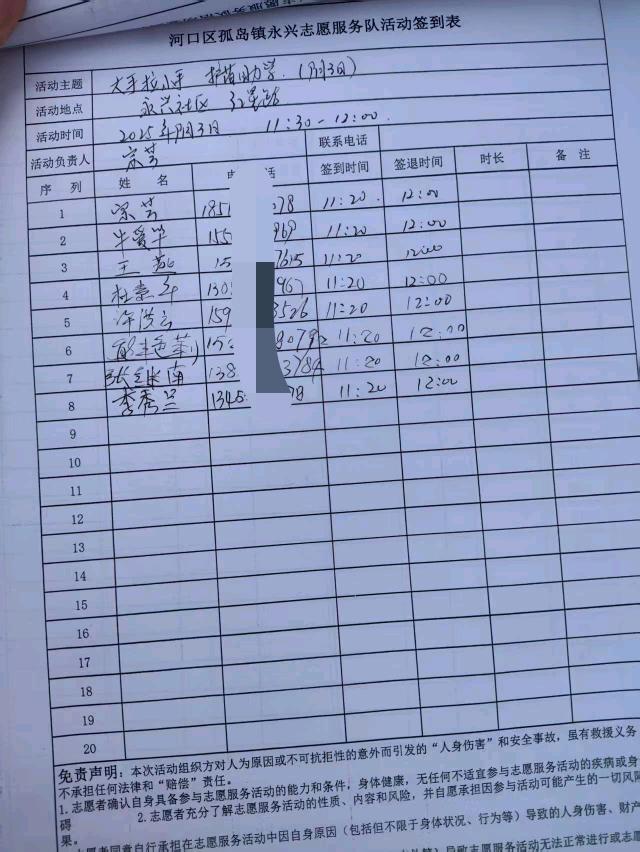 河口区孤岛镇永兴志愿服务队活动签到表
活动主题 大手拉小手 护苗助学.(月3日)
活动地点 永兴社区
活动时间 2025年 月3日 11:30-12:00.
活动负责人 宗芳 联系电话
序 列 姓 名 电 话 签到时间 签退时间 时长 备 注
1 宗芳 185 78 11:20. 12:00
2 牛爱华 155 969 11:20 12:00
3 王 15 7615 11:20 12:00
4 杜 130 967 11:20 12:00
5 许洪云 159 3526 11:20 12:00
6 11:20 12:00
7 张 南 138 3784 11:20 12:00
8 李秀兰 1345 78 11:20 12:00
9
10
11
12
13
14
15
16
17
18
19
20
免责声明：本次活动组织方对人为原因或不可抗拒性的意外而引发的“人身伤害”和安全事故，虽有救援义务
不承担任何法律和“赔偿”责任。
1.志愿者确认自身具备参与志愿服务活动的能力和条件，身体健康，无任何不适宜参与志愿服务活动的疾病或身
碍 2.志愿者充分了解志愿服务活动的性质、内容和风险，并自愿承担因参与活动可能产生的一切风险
果。
志愿者同意自行承担在志愿服务活动中因自身原因（包括但不限于身体状况、行为等）导致的人身伤害、财产
导致志愿服务活动无法正常进行或志愿